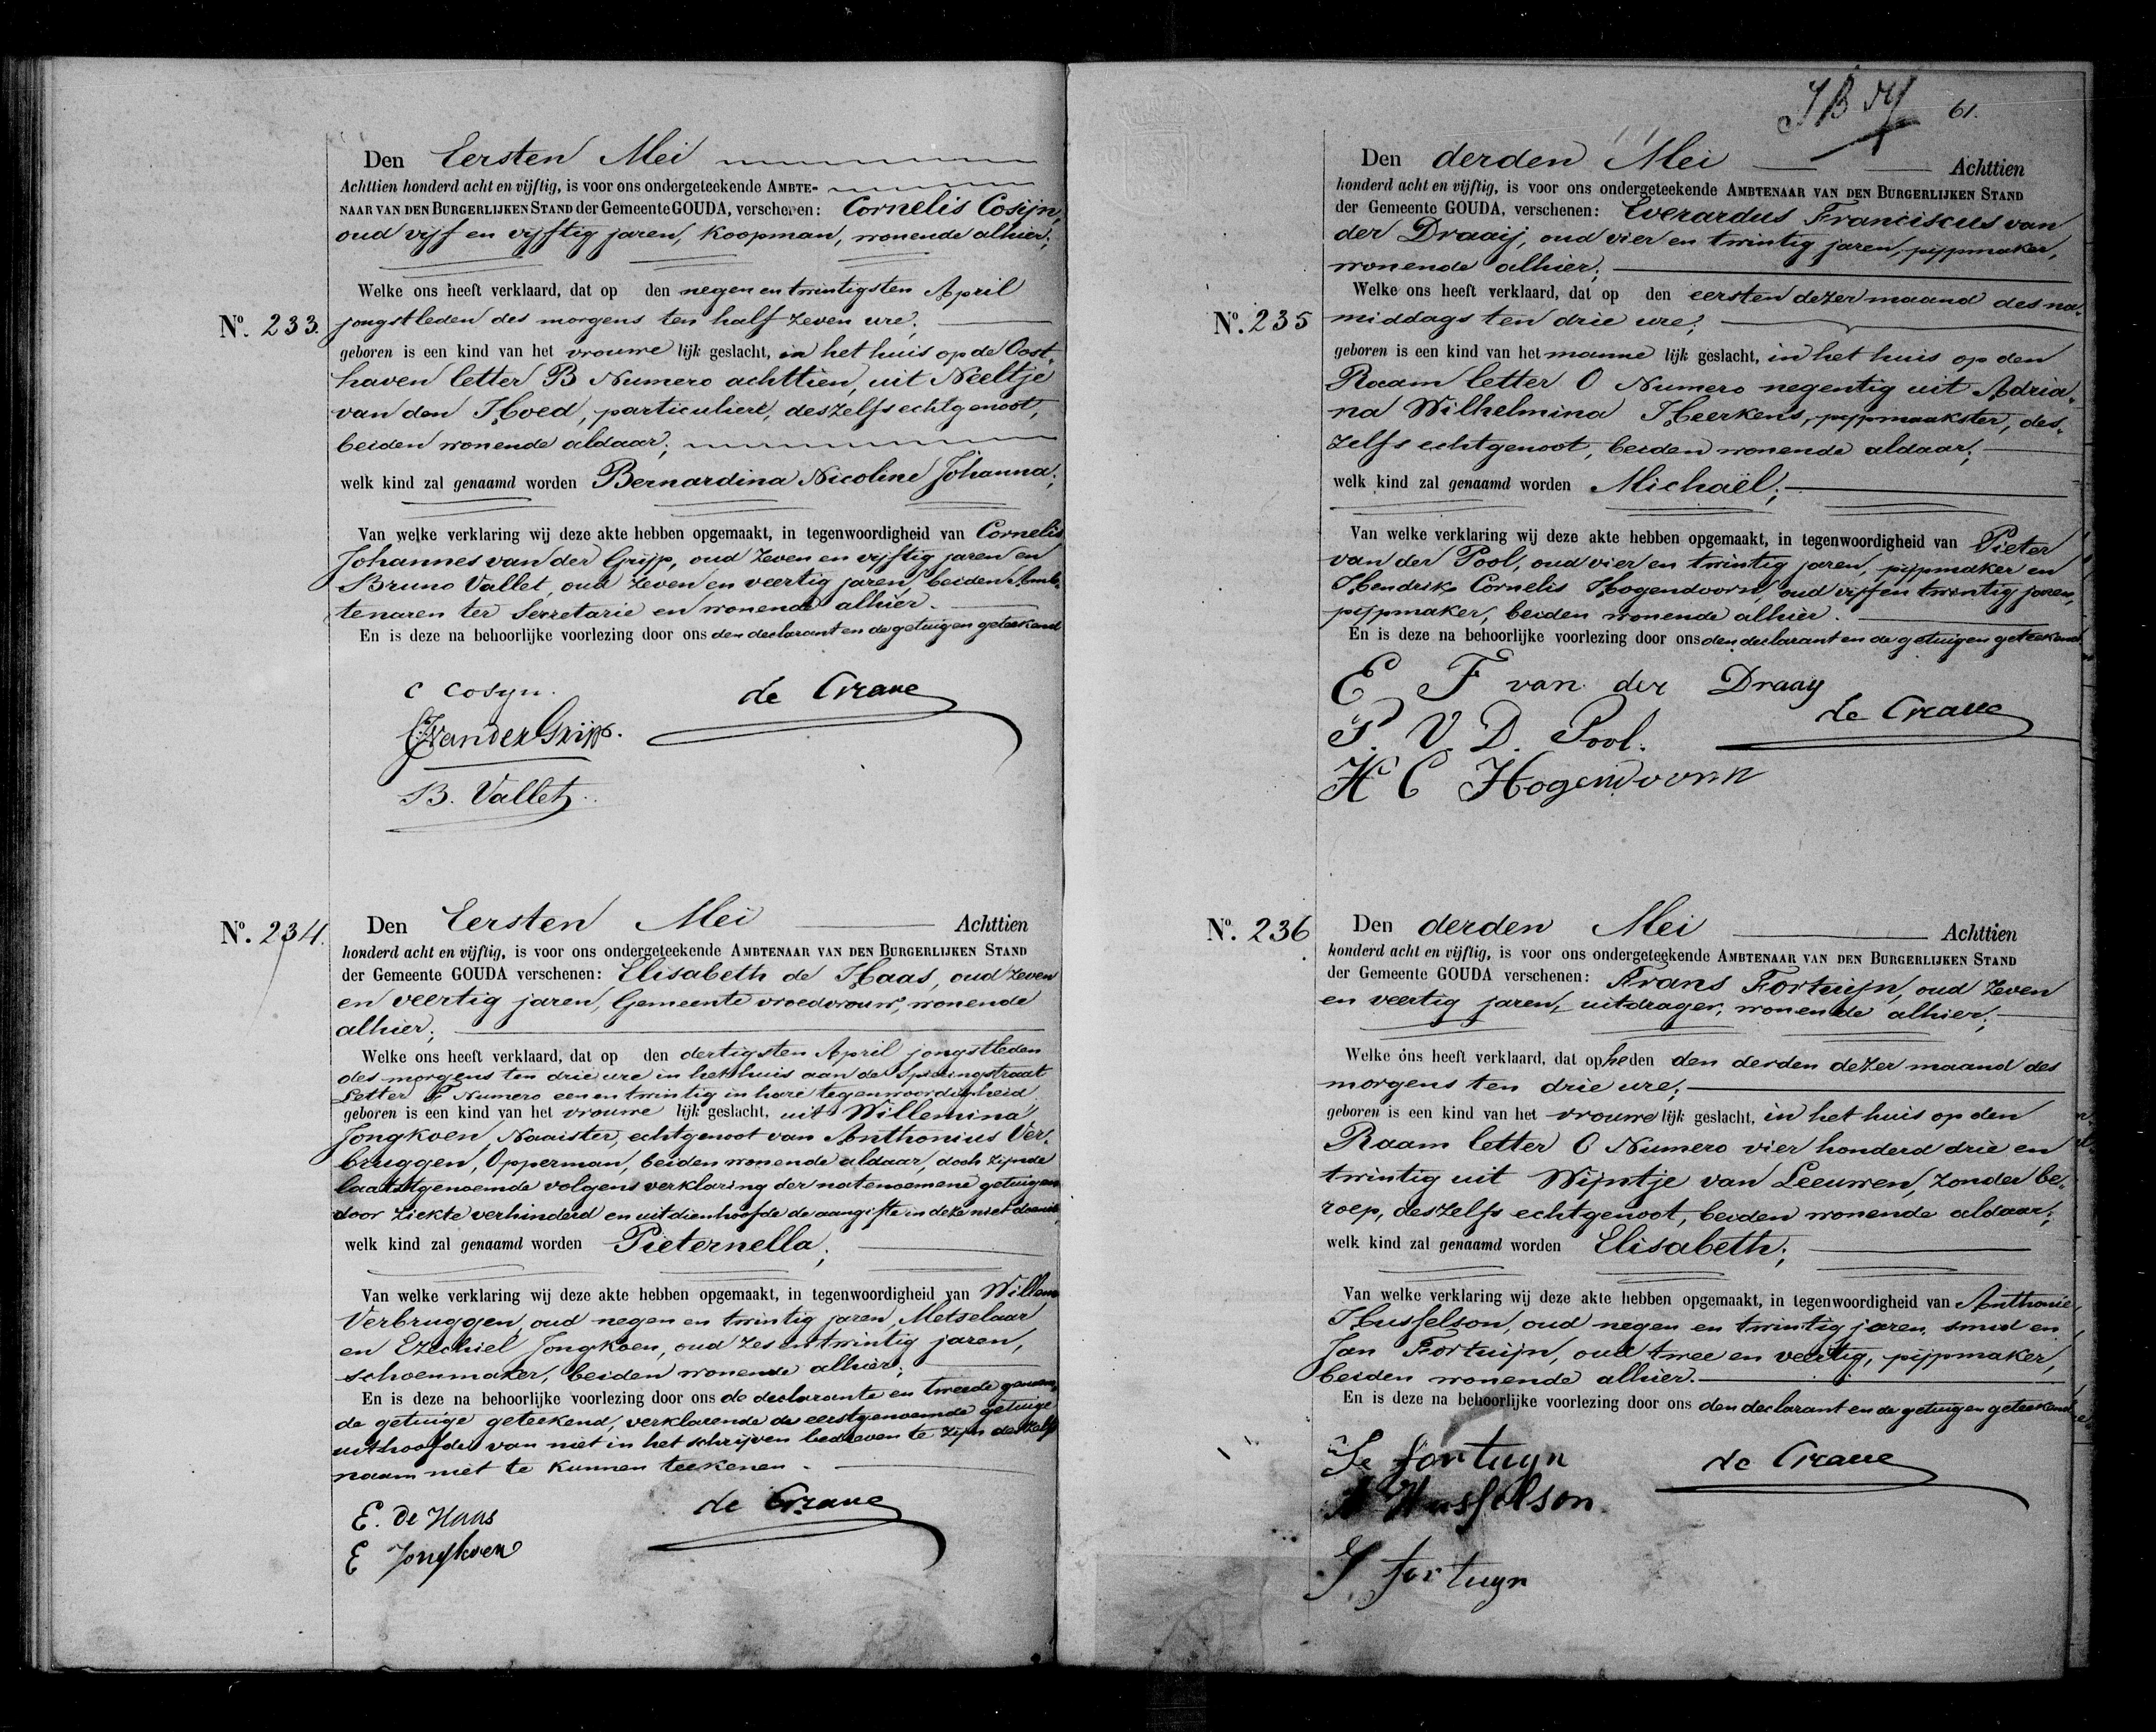 Den Eersten Mei
Achttien honderd acht en vijftig, is voor ons ondergeteekende AMBTE-
NAAR VAN DEN BURGERLIJKEN STAND der Gemeente GOUDA, verschenen: Cornelis Cosijn,
oud vijf en vijftig jaren, koopman, wonende alhier;
Welke ons heeft verklaard, dat op den negen en twintigsten April
No. 233. jongstleden des morgens ten half zeven ure;
geboren is een kind van het vrouwe lijk geslacht, in het huis op de Oost-
haven letter B Numero achttien, uit Neeltje
van den Hoed, particuliere, deszelfs echtgenoot,
beiden wonende aldaar;
welk kind zal genaamd worden Bernardina Nicoline Johanna;
Van welke verklaring wij deze akte hebben opgemaakt, in tegenwoordigheid van Cornelis
Johannes van der Grijp, oud zeven en vijftig jaren en
Bruno Vallet, oud zeven en veertig jaren, beiden Amb-
tenaren ter Secretarie en wonende alhier.
En is deze na behoorlijke voorlezing door ons den declarant en de getuigen geteekend
C Cosyn. de Crane
CJ van der Grijp.
B. Vallet
No. 234. Den Eersten Mei Achttien
honderd acht en vijftig, is voor ons ondergeteekende AMBTENAAR VAN DEN BURGERLIJKEN STAND
der Gemeente GOUDA verschenen: Elisabeth de Haas, oud zeven
en veertig jaren, Gemeente vroedvrouw, wonende
alhier;
Welke ons heeft verklaard, dat op den dertigsten April jongstleden
des morgens ten drie ure in het huis aan de Spieringstraat
Letter F Numero een en twintig in hare tegenwoordigheid
geboren is een kind van het vrouwe lijk geslacht, uit Willemina
Jongkoen, Naaister, echtgenoot van Anthonius Ver-
bruggen, Opperman, beiden wonende aldaar, doch zijnde
laatstgenoemde volgens verklaring der natenoemene getuigen
door ziekte verhinderd en uit dien hoofde de aangifte in deze niet doende,
welk kind zal genaamd worden Pieternella;
Van welke verklaring wij deze akte hebben opgemaakt, in tegenwoordigheid van Willem
Verbruggen, oud negen en twintig jaren, Metselaar
en Ezechiel Jongkoen, oud zes en twintig jaren,
schoenmaker, beiden wonende alhier;
En is deze na behoorlijke voorlezing door ons de declarante en tweede genoem-
de getuige geteekend, verklarende de eerstgenoemde getuige
uit hoofde van niet in het schrijven bedreven te zijn deszelfs
naam niet te kunnen teekenen.
E. de Haas de Crane
E Jongkoen
61.
Den derden Mei Achttien
honderd acht en vijftig, is voor ons ondergeteekende AMBTENAAR VAN DEN BURGERLIJKEN STAND
der Gemeente GOUDA, verschenen: Everardus Franciscus van
der Draaij, oud vier en twintig jaren, pijpmaker,
wonende alhier;
Welke ons heeft verklaard, dat op den eersten dezer maand des na-
No. 235 middags ten drie ure;
geboren is een kind van het manne lijk geslacht, in het huis op den
Raam letter O Numero negentig uit Adria-
na Wilhelmina Heerkens, pijpmaakster, des-
zelfs echtgenoot, beiden wonende aldaar;
welk kind zal genaamd worden Michaël;
Van welke verklaring wij deze akte hebben opgemaakt, in tegenwoordigheid van Pieter
van der Pool, oud vier en twintig jaren, pijpmaker en
Hendrik Cornelis Hogendoorn, oud vijf en twintig jaren,
pijpmaker, beiden wonende alhier.
En is deze na behoorlijke voorlezing door ons den declarant en de getuigen geteekend
E F van der Draay
de Crane
P. V. D. Pool.
H C Hogendoorn
No. 236 Den derden Mei Achttien
honderd acht en vijftig, is voor ons ondergeteekende AMBTENAAR VAN DEN BURGERLIJKEN STAND
der Gemeente GOUDA verschenen: Frans Fortuijn, oud zeven
en veertig jaren, uitdrager, wonende alhier;
Welke ons heeft verklaard, dat op heden den derden dezer maand des
morgens ten drie ure;
geboren is een kind van het vrouwe lijk geslacht, in het huis op den
Raam letter O Numero vier honderd drie en
twintig uit Wijntje van Leeuwen, zonder be-
roep, deszelfs echtgenoot, beiden wonende aldaar;
welk kind zal genaamd worden Elisabeth;
Van welke verklaring wij deze akte hebben opgemaakt, in tegenwoordigheid van Anthonie
Husselson, oud negen en twintig jaren, smid en
Jan Fortuijn, oud twee en veertig, pijpmaker,
beiden wonende alhier.
En is deze na behoorlijke voorlezing door ons den declarant en de getuigen geteekend
fortuyn de Crane
A Husselson.
J fortuyn